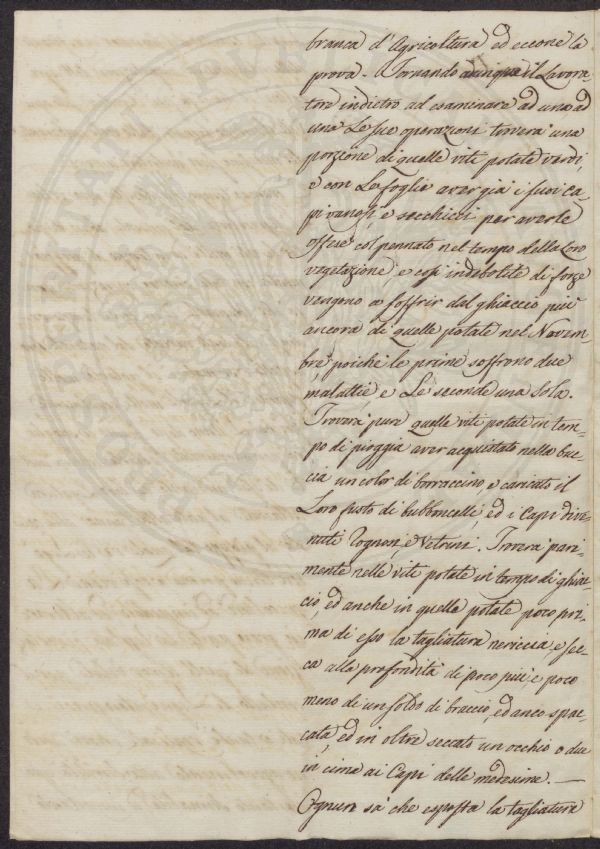 branca d'Agricoltura ed eccone la
prova. Tornando adunque il Lavora=
tore indietro ad esaminare ad una ad
una Le sue operazioni troverà una
porzione di quelle viti potate verdi,
e con La foglia aver già i suoi Ca=
pi vanosi, e secchicci per averle
offese col pennato nel tempo della Loro
vegetazione, e così indebolite di forze
vengono a soffrir dal ghiaccio più
ancora di quelle potate nel Novem=
bre, poichè le prime soffrono due
malattie, e Le seconde una sola.
Troverà pure quelle viti potate in tem=
po di pioggia aver acquistato nella buc=
cia un color di borraccino, e caricato il
Loro fusto di bubboncelli, ed i Capi dive=
nuti Rognosi, e Vetrini. Troverà pari=
mente nelle viti potate in tempo di ghiac=
cio, ed anche in quelle potate poco pri=
ma di esso la tagliatura nericcia, e sec=
ca alla profondità di poco più, e poco
meno di un soldo di braccio, ed anco spac=
cata, ed in oltre seccato un occhio o due
in cima ai Capi delle medesime. —
Ognun sà che esposta la tagliatura